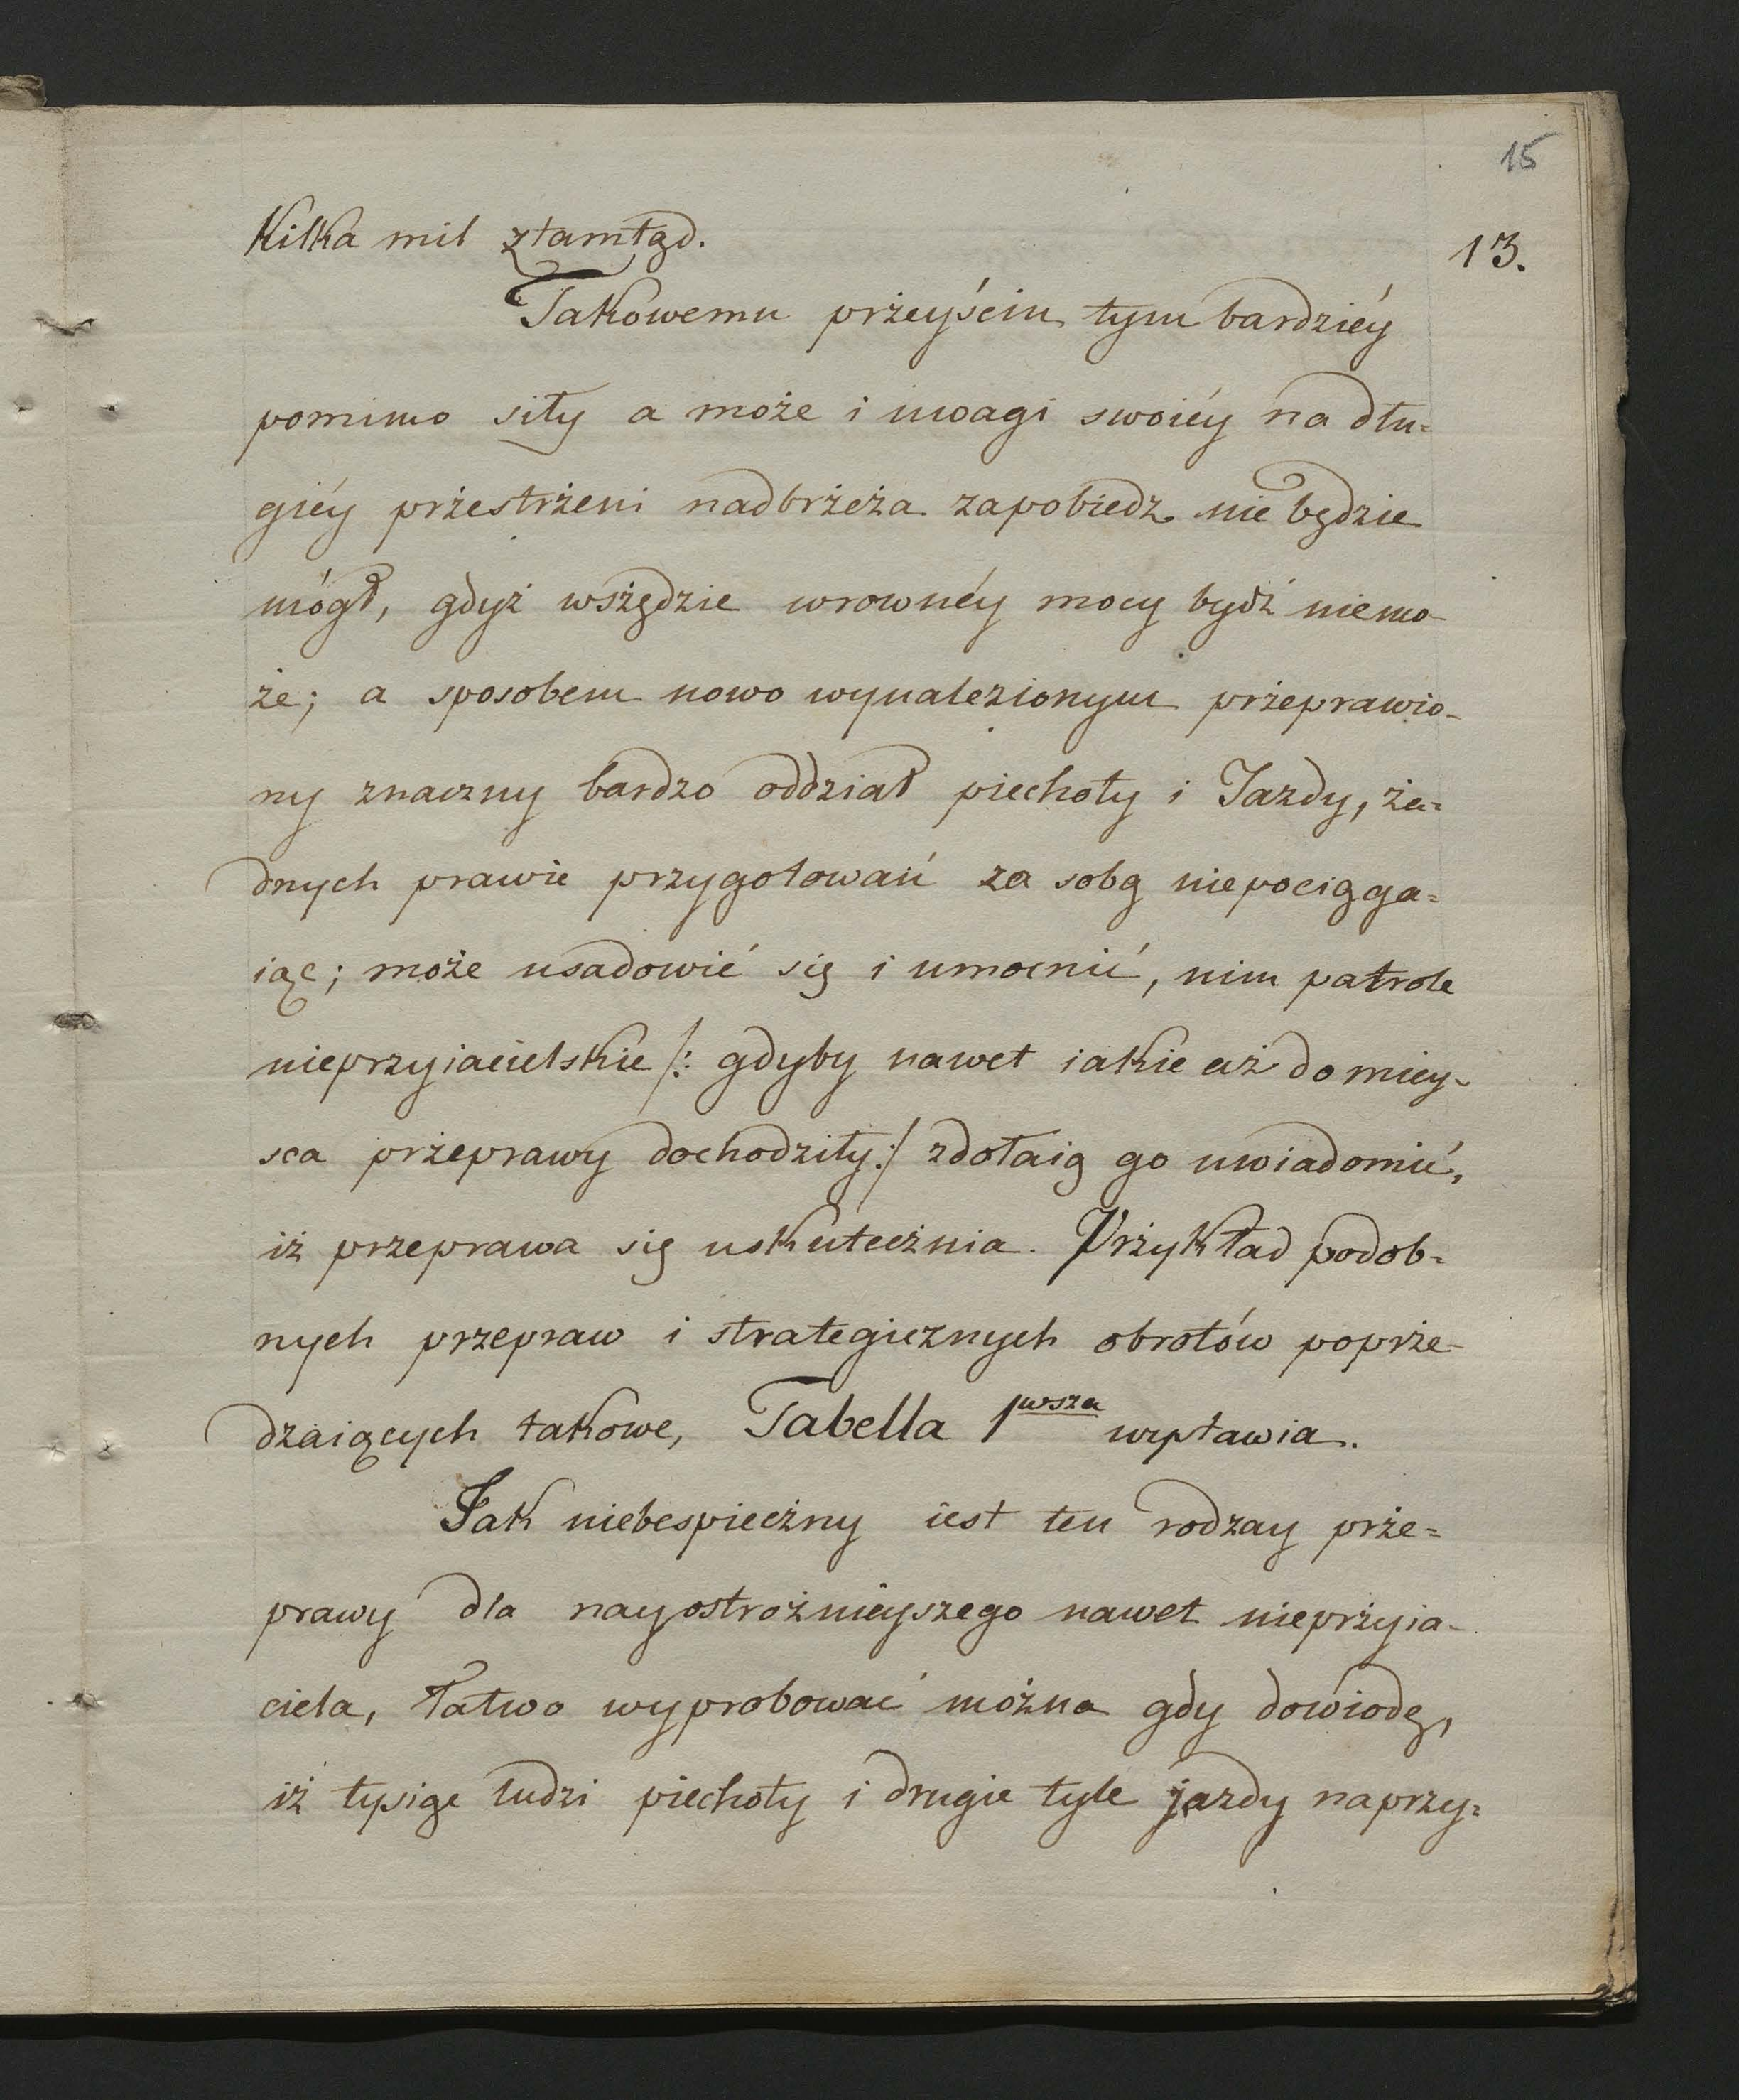 15
Kilka mil ztamtąd.
13.
Takowemu przeyściu tym bardziéy
pomimo siły a może i uwagi swoiéy na dłu=
giéy przestrżeni nadbrżeża zapobiedz nie będzie
mógł, gdyż wszędzie wrownéy mocy bydź niemo-
że; a sposobem nowo wynalezionym przeprawio-
ny znaczny bardzo oddział piechoty i Jazdy, ża=
dnych prawie przygotowań za sobą niepociąga=
iąc; może usadowić się i umocnić, nim patrole
nieprzyiacielskie /: gdyby nawet iakie aż do miey-
sca przeprawy dochodziły :/ zdołaią go uwiadomić,
iż przeprawa się uskutecżnia. Przykład podob=
nych przepraw i strategicznych obrotów poprże-
dzaiących takowe, Tabella 1wsza wystawia.
Jak niebespiecżny iest ten rodzay prże=
prawy dla nayostrożniéyszego nawet nieprżyia-
ciela, łatwo wyprobować można gdy dowiodę,
iż tysiąc ludzi piechoty i drugie tyle jazdy naprzy=